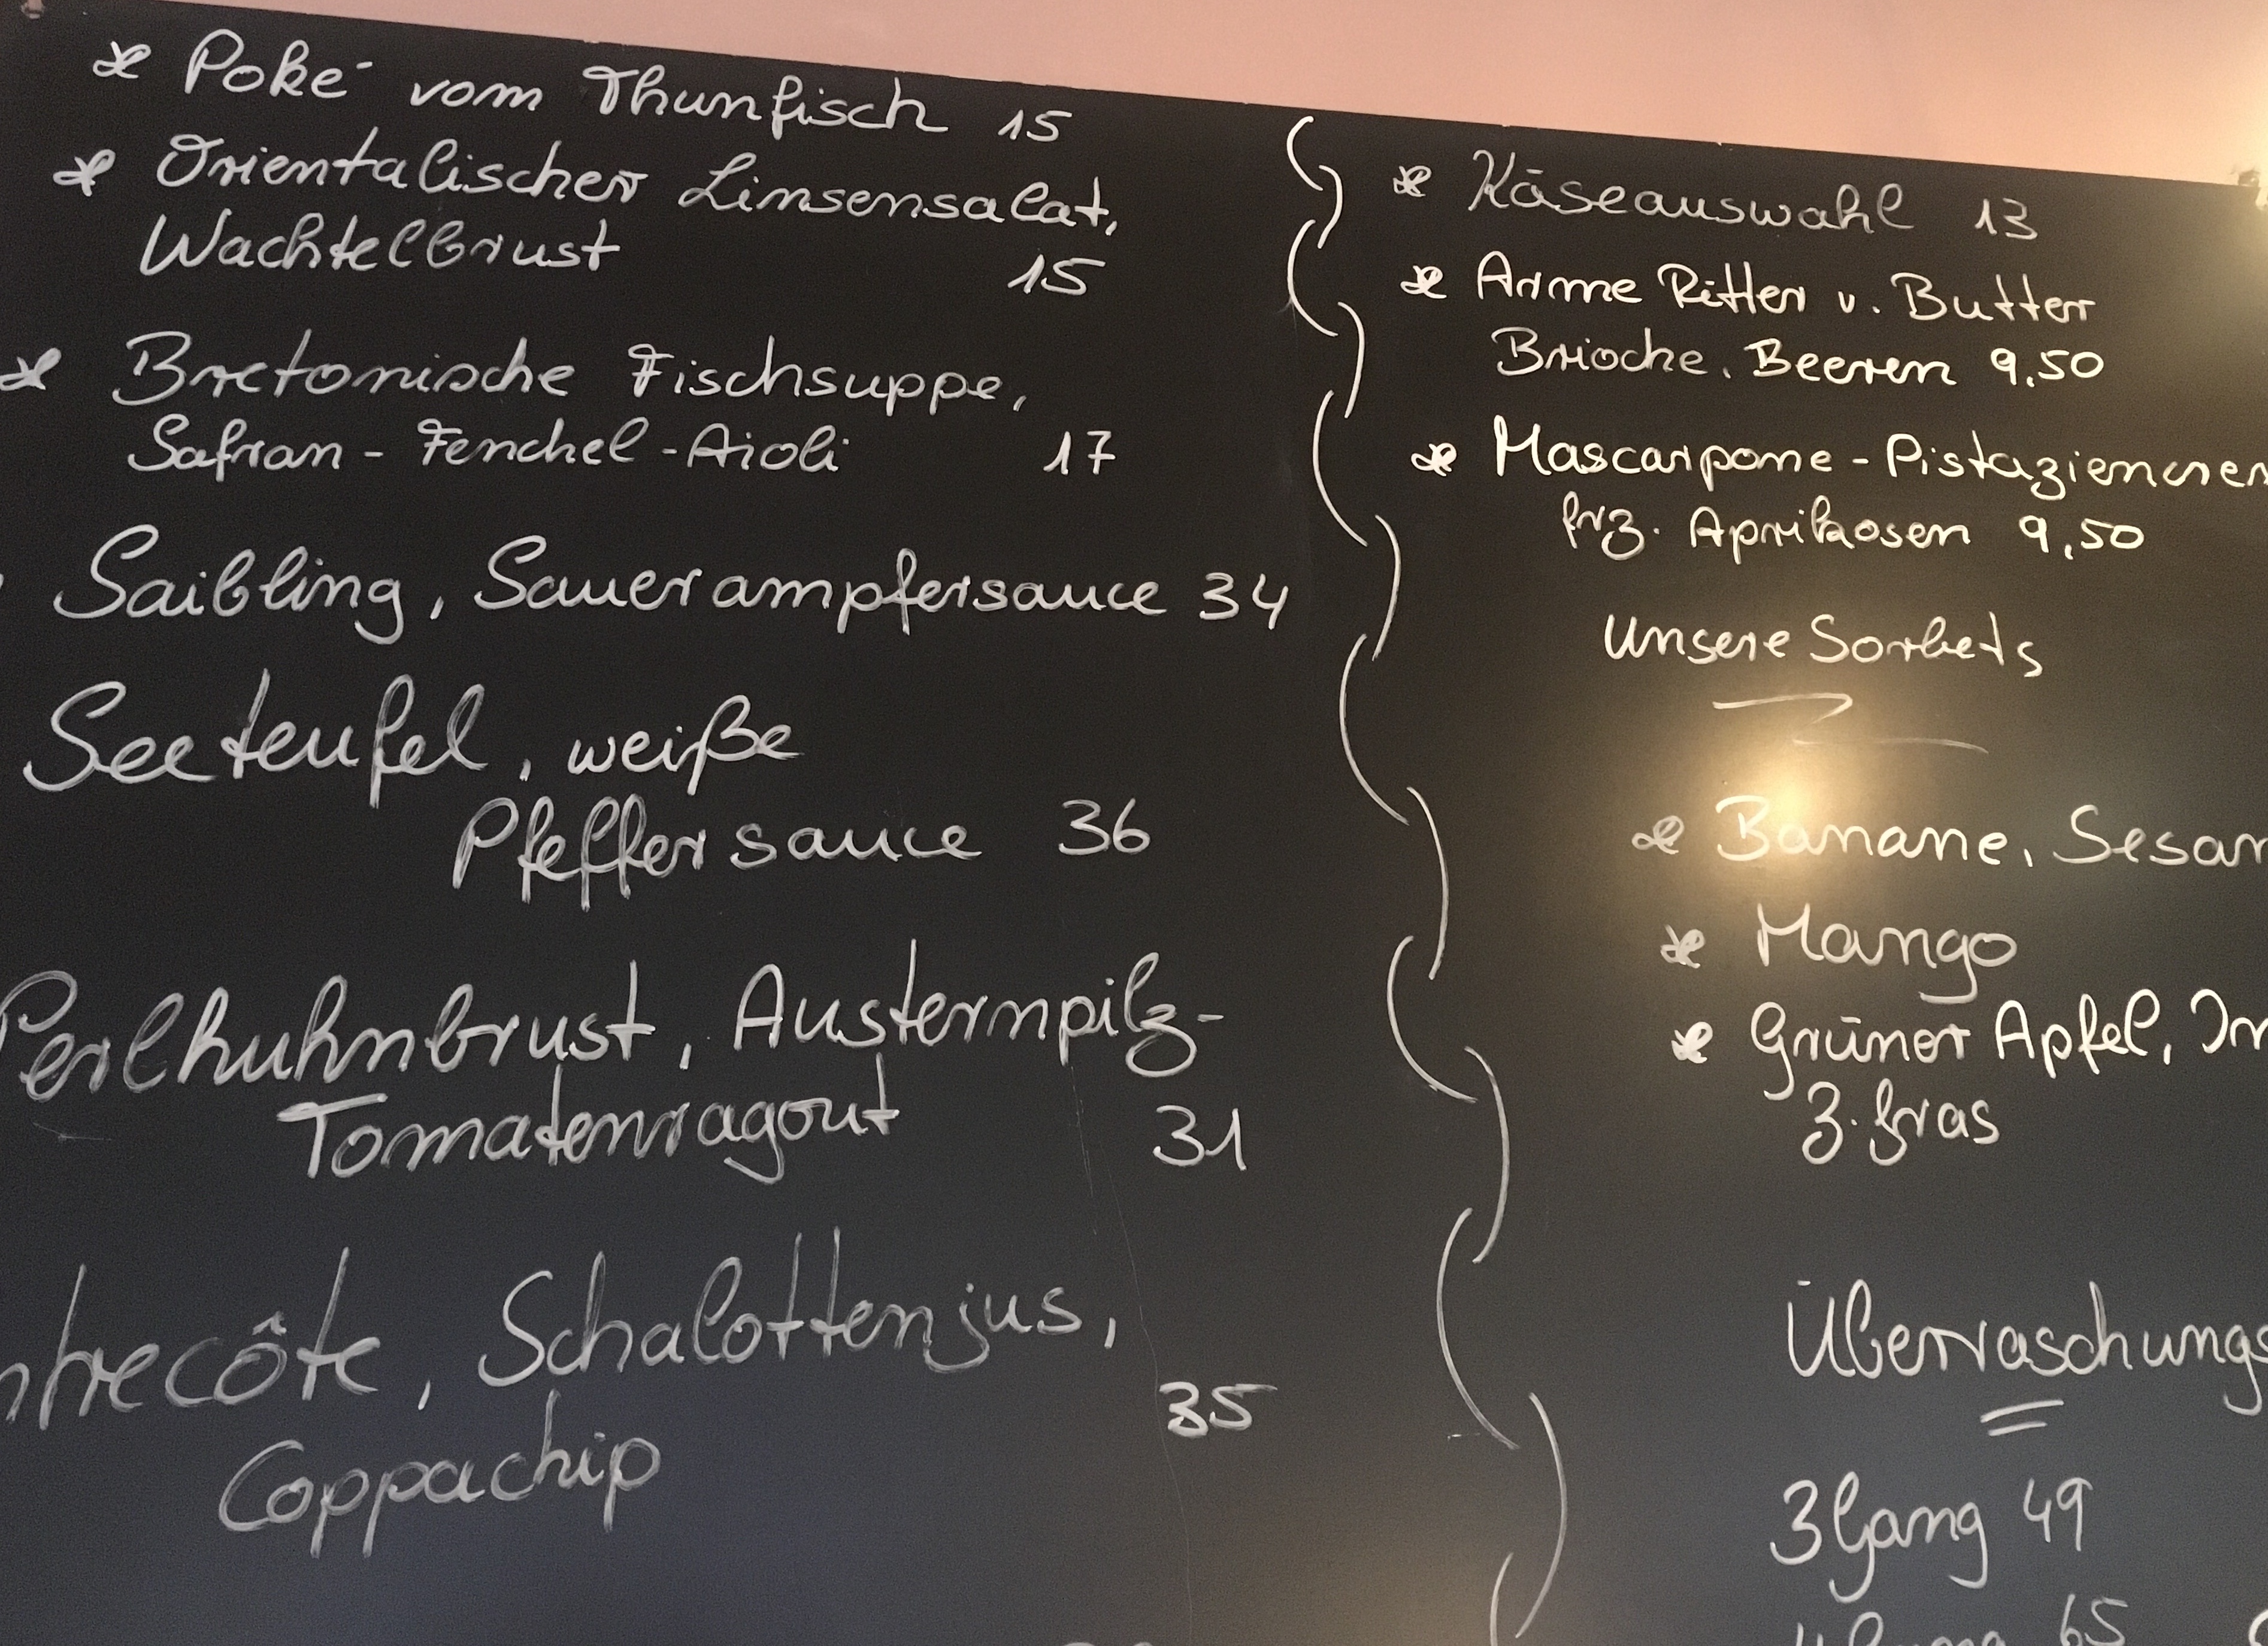 Poké vom Thunfisch 15
Orientalischer Linsensalat,
Wachtelbrust 15
Bretonische Fischsuppe,
Safran - Fenchel - Aioli 17
Saibling, Sauerampfersauce 34
Seeteufel, weiße
Pfeffersauce 36
Perlhuhnbrust, Austernpilz-
Tomatenragout 31
ntrecôte, Schalottenjus,
35
Coppachip
Käseauswahl 13
Arme Ritter v. Butter
Brioche, Beeren 9,50
Mascarpone - Pistaziencrem
frz. Aprikosen 9,50
Unsere Sorbets
Banane, Sesam
Mango
Grüner Apfel, In
Z.gras
Überraschungs
3 Gang 49
65